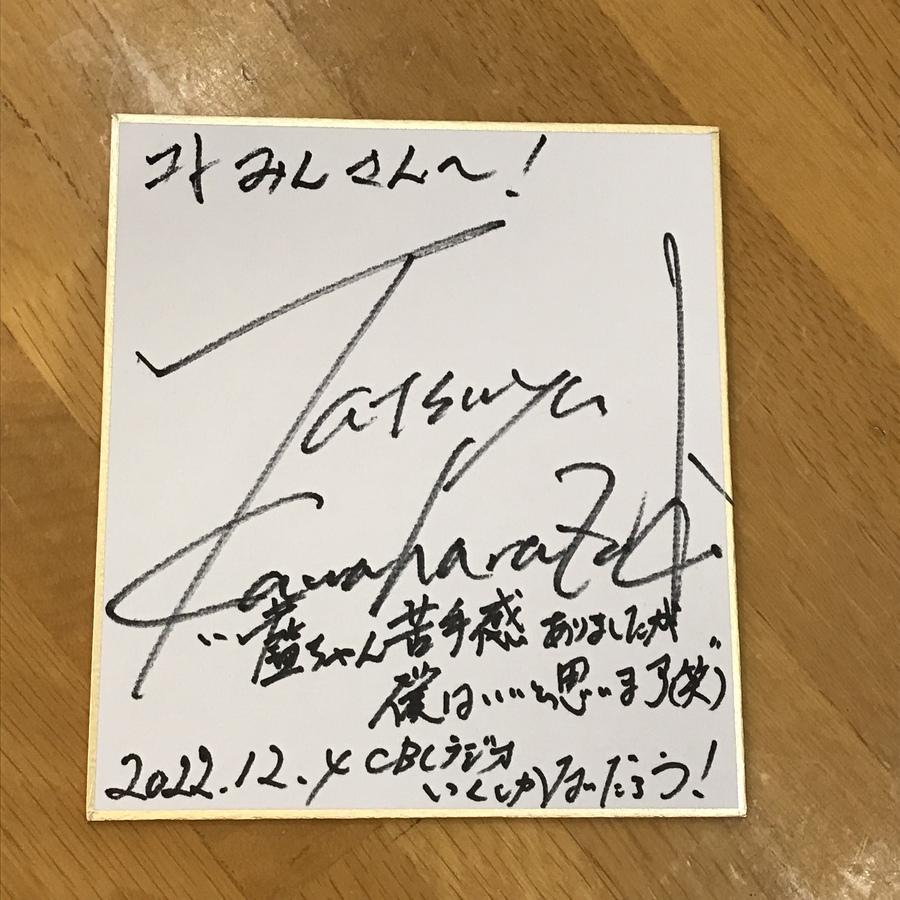 コトみんさん〜!
Tatsuya
ちゃん苦手感ありましたが
僕はいいと思います(笑)
2022.12.4 CBCラジオ
いくしかないだろう!